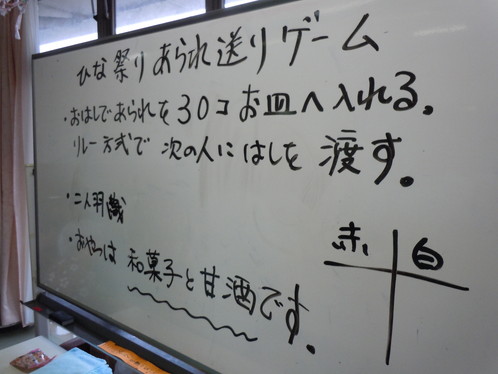 ひな祭りあられ送りゲーム
・おはしであられを30コお皿へ入れる。
リレー方式で次の人にはしを渡す。
・二人羽織
・おやつは和菓子と甘酒です。
赤 白